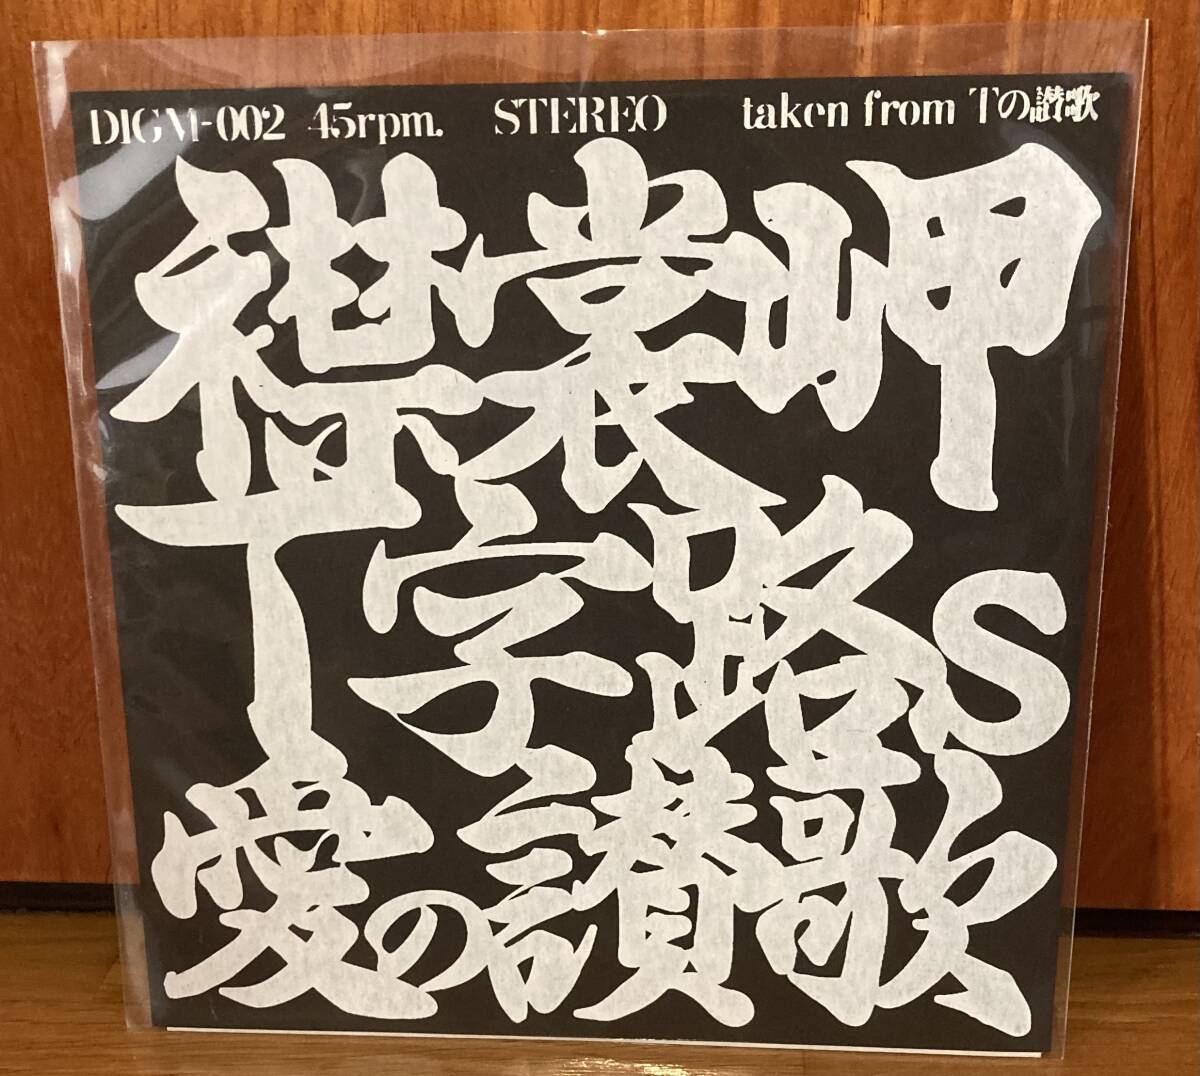 DIGM-002 45rpm. STEREO taken from Tの讃歌
襟裳岬
T字路s
愛の讃歌